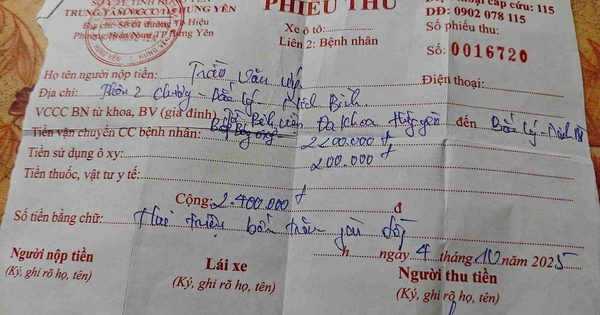 SỞ Y TẾ TỈNH HƯNG YÊN
TRUNG TÂM CẤP CỨU 115 HƯNG YÊN
Địa chỉ: Số 01 đường Tô Hiệu
Phường Hiến Nam, TP Hưng Yên
PHIẾU THU
Xe ô tô:
Liên 2: Bệnh nhân
thoại cấp cứu: 115
DĐ: 0902 078 115
Số phiếu thu:
Số: 0016720
Họ tên người nộp tiền: Trần Văn
Điện thoại:
Địa chỉ: Thôn 2 - Bắc Lý - Ninh Bình
VCCC BN từ khoa, BV (gia đình) Bệnh viện Đa khoa Hưng yên đến Bắc Lý -
Tiền vận chuyển CC bệnh nhân: 2200.000 đ
Tiền sử dụng ô xy: 200.000 đ
Tiền thuốc, vật tư y tế:
Cộng: 2.400.000 đ đ
Số tiền bằng chữ: Hai triệu bốn trăm
h, ngày 4 tháng 10 năm 2025
Người nộp tiền
(Ký, ghi rõ họ, tên)
Lái xe
(Ký, ghi rõ họ, tên)
Người thu tiền
(Ký, ghi rõ họ, tên)